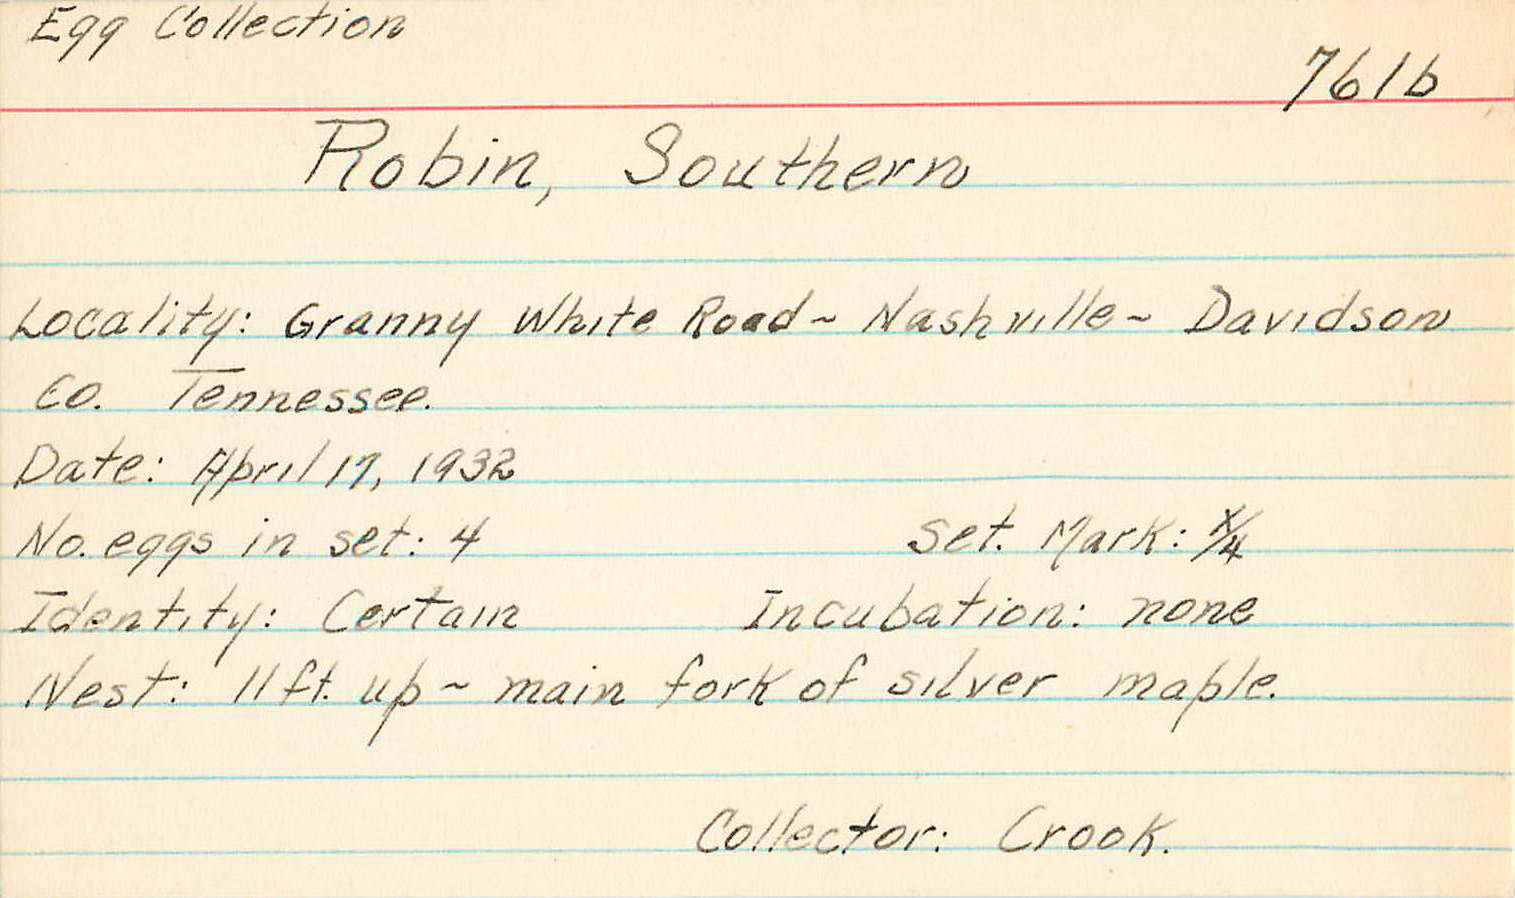 Egg Collection
761b
Robin, Southern
Locality: Granny White Road ~ Nashville ~ Davidson
Co. Tennessee.
Date: April 17, 1932
No. eggs in set: 4 Set. Mark: X/4
Identity: Certain Incubation: none
Nest: 11 ft. up ~ main fork of silver maple.
Collector: Crook.